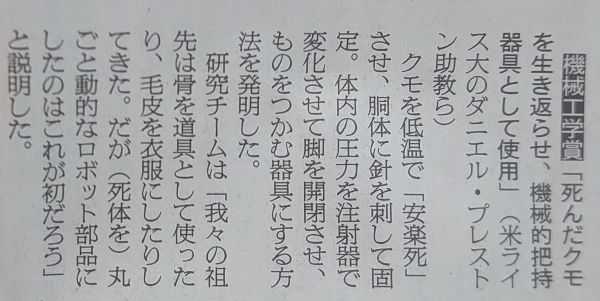 機械工学賞「死んだクモ
を生き返らせ、機械的把持
器具として使用」（米ライ
ス大のダニエル・プレスト
ン助教ら）
クモを低温で「安楽死」
させ、胴体に針を刺して固
定。体内の圧力を注射器で
変化させて脚を開閉させ、
ものをつかむ器具にする方
法を発明した。
研究チームは「我々の祖
先は骨を道具として使った
り、毛皮を衣服にしたりし
てきた。だが（死体を）丸
ごと動的なロボット部品に
したのはこれが初だろう」
と説明した。